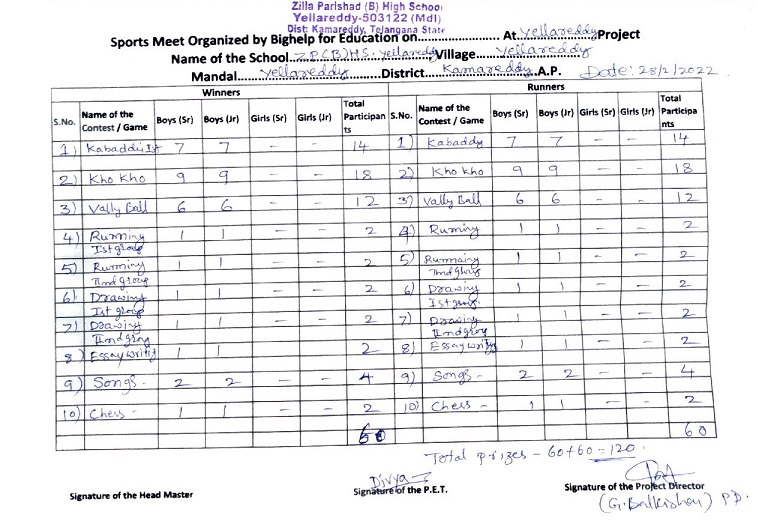 Zilla Parishad (B) High School
Yellareddy-503122 (Mdl)
Dist: Kamareddy, Telangana State
Sports Meet Organized by Bighelp for Education on........................ At yellareddy Project
Name of the School Z.P.(B)HS. yellareddy Village yellareddy
Mandal yellareddy District Kamareddy A.P. Date: 28/2/2022
Winners Runners
S.No. Name of the Contest / Game Boys (Sr) Boys (Jr) Girls (Sr) Girls (Jr) Total Participan ts S.No. Name of the Contest / Game Boys (Sr) Boys (Jr) Girls (Sr) Girls (Jr) Total Participa nts
1) Kabaddi Ist 7 7 - - 14 1) Kabaddy 7 7 - - 14
2) Kho kho 9 9 - - 18 2) Kho kho 9 9 - - 18
3) Vally Ball 6 6 - - 12 3) Vally Ball 6 6 - - 12
4) Running Ist group 1 1 - - 2 4) Runing 1 1 - - 2
5) Running IInd group 1 1 - - 2 5) Running IInd group 1 1 - - 2
6) Drawing Ist group 1 1 - - 2 6) Drawing Ist group 1 1 - - 2
7) Drawing IInd groy 1 1 - - 2 7) Drawing IInd groy 1 1 - - 2
8) Essay writing 1 1 2 8) Essay writing 1 1 - - 2
9) Songs - 2 2 - - 4 9) Songs - 2 2 - - 4
10) Chess - 1 1 - - 2 10) Chess - 1 1 - - 2
60 60
Total prizes - 60+60=120.
Divya
Signature of the Head Master Signature of the P.E.T. Signature of the Project Director
(G. Balkishan) P.D.